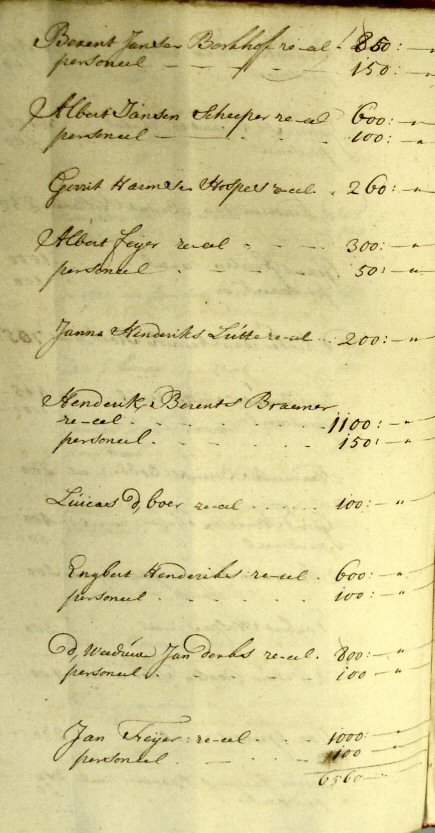 Berent Jansen Borkhof re-eel 850:—„
personeel — — — 150:—„
Albert Jansen Scheeper re-eel 600:—„
personeel — — — 100:—„
Gerrit Harmsen Hospers re-eel . 260:—„
Albert Feijer re-eel — — 300:—„
personeel . — — . 50:—„
Janna Henderiks Lutte re-eel . 200:—„
Henderik Berents Braemer
re-eel . . . . 1100:—„
personeel . . . . 150:—„
Lucas d, boer re-eel . . . . 100:—„
Engbert Henderiks re-eel . 600:—„
personeel . . . . 100:—„
d, Weeduwe Jan derks re-eel . 800:—„
personeel . . . . 100—„
Jan Feijer: re-eel . . . . 1000:—
personeel . — . . 100—
6560—